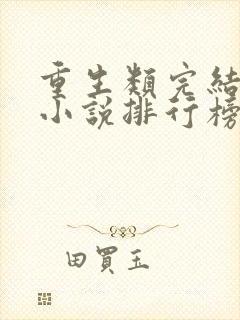 重生類完結
小說排行榜
田買玉